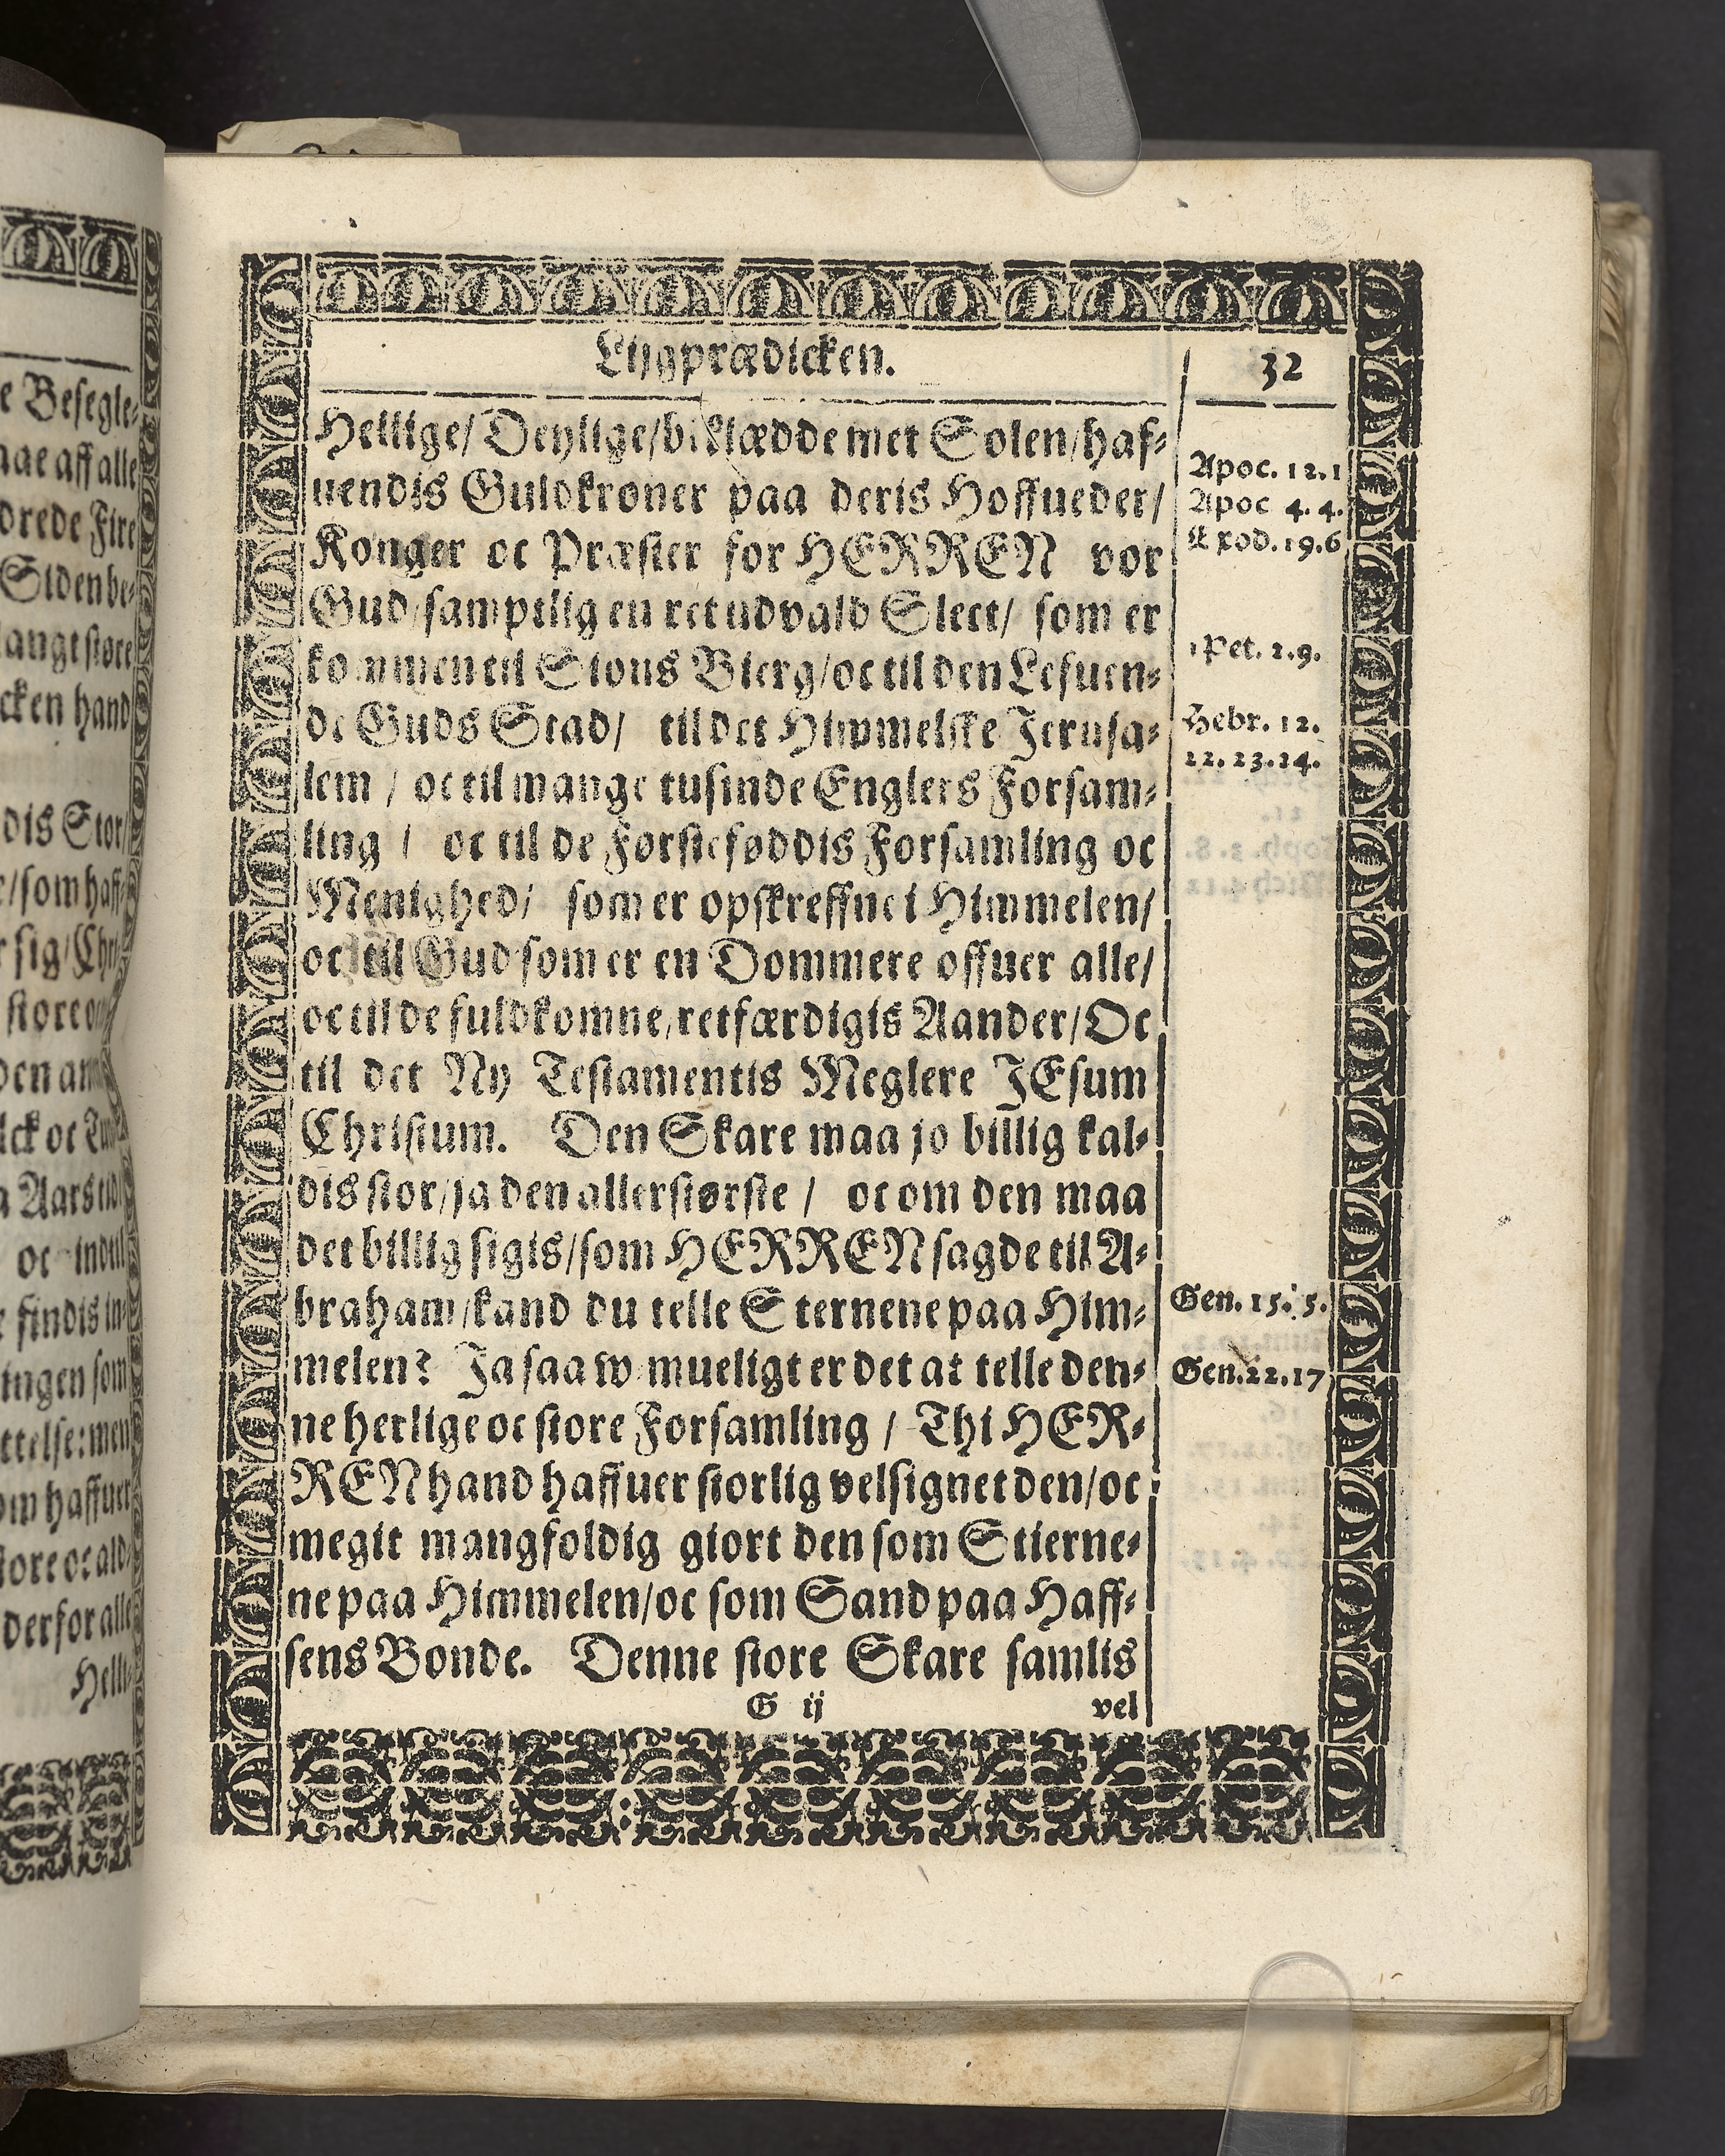 Lijgprædicken.
32
Hellige/ Deylige/ beklædde met Solen/ haf-
uendis Guldkroner paa deris Hoffueder/
Konger oc Præster for HERREN vor
Gud/ samptlig en ret udvald Slect/ som er
kommen til Sions Bierg/ oc til den Lefuen-
de Guds Stad/ til det Himmelske Jerusa-
lem / oc til mange tusinde Englers Forsam-
ling / oc til de Førsteføddis Forsamling oc
Menighed/ som er opskreffne i Himmelen/
oc til Gud som er en Dommere offuer alle/
oc til de fuldkomne/ retfærdigis Aander/ Oc
til det Ny Testamentis Meglere JEsum
Christum. Den Skare maa jo billig kal-
dis stor/ ja den allerstørste / oc om den maa
det billig sigis/ som HERREN sagde til A-
braham/ kand du telle Sternene paa Him-
melen? Ja saa w mueligt er det at telle den-
ne herlige oc store Forsamling / Thi HER-
REN hand haffuer storlig velsignet den/ oc
megit mangfoldig giort den som Stierne-
ne paa Himmelen/ oc som Sand paa Haff-
sens Bonde. Denne store Skare samlis
G ij
vel
Apoc. 12.1
Apoc 4.4.
Exod. 19.6
1 Pet. 2.9.
Hebr. 12.
22. 23. 24.
Gen. 15. 5.
Gen. 22. 17
e Besegle-
aae aff alle
drede Fire
Siden be-
ange støre
cken hand
dis Stor/
/ som haff-
r sig/ Chri-
store
den an
lck oc
Aars
oc indtil
findis in-
ingen som
ttelse: men
om haffuer
store oc ald-
derfor alle
Helli-